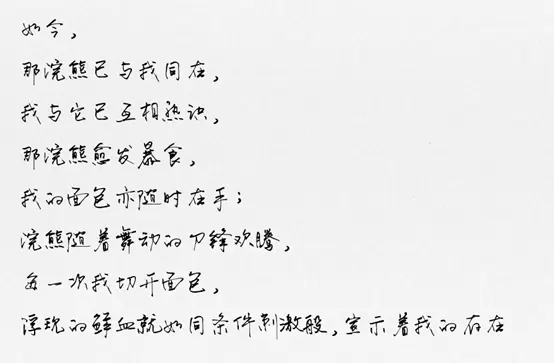 如今，
那浣熊已与我同在，
我与它已互相熟识，
那浣熊愈发暴食，
我的面包亦随时在手；
浣熊随着舞动的刀锋欢腾，
每一次我切开面包，
浮现的鲜血就如同条件刺激般，宣示着我的存在